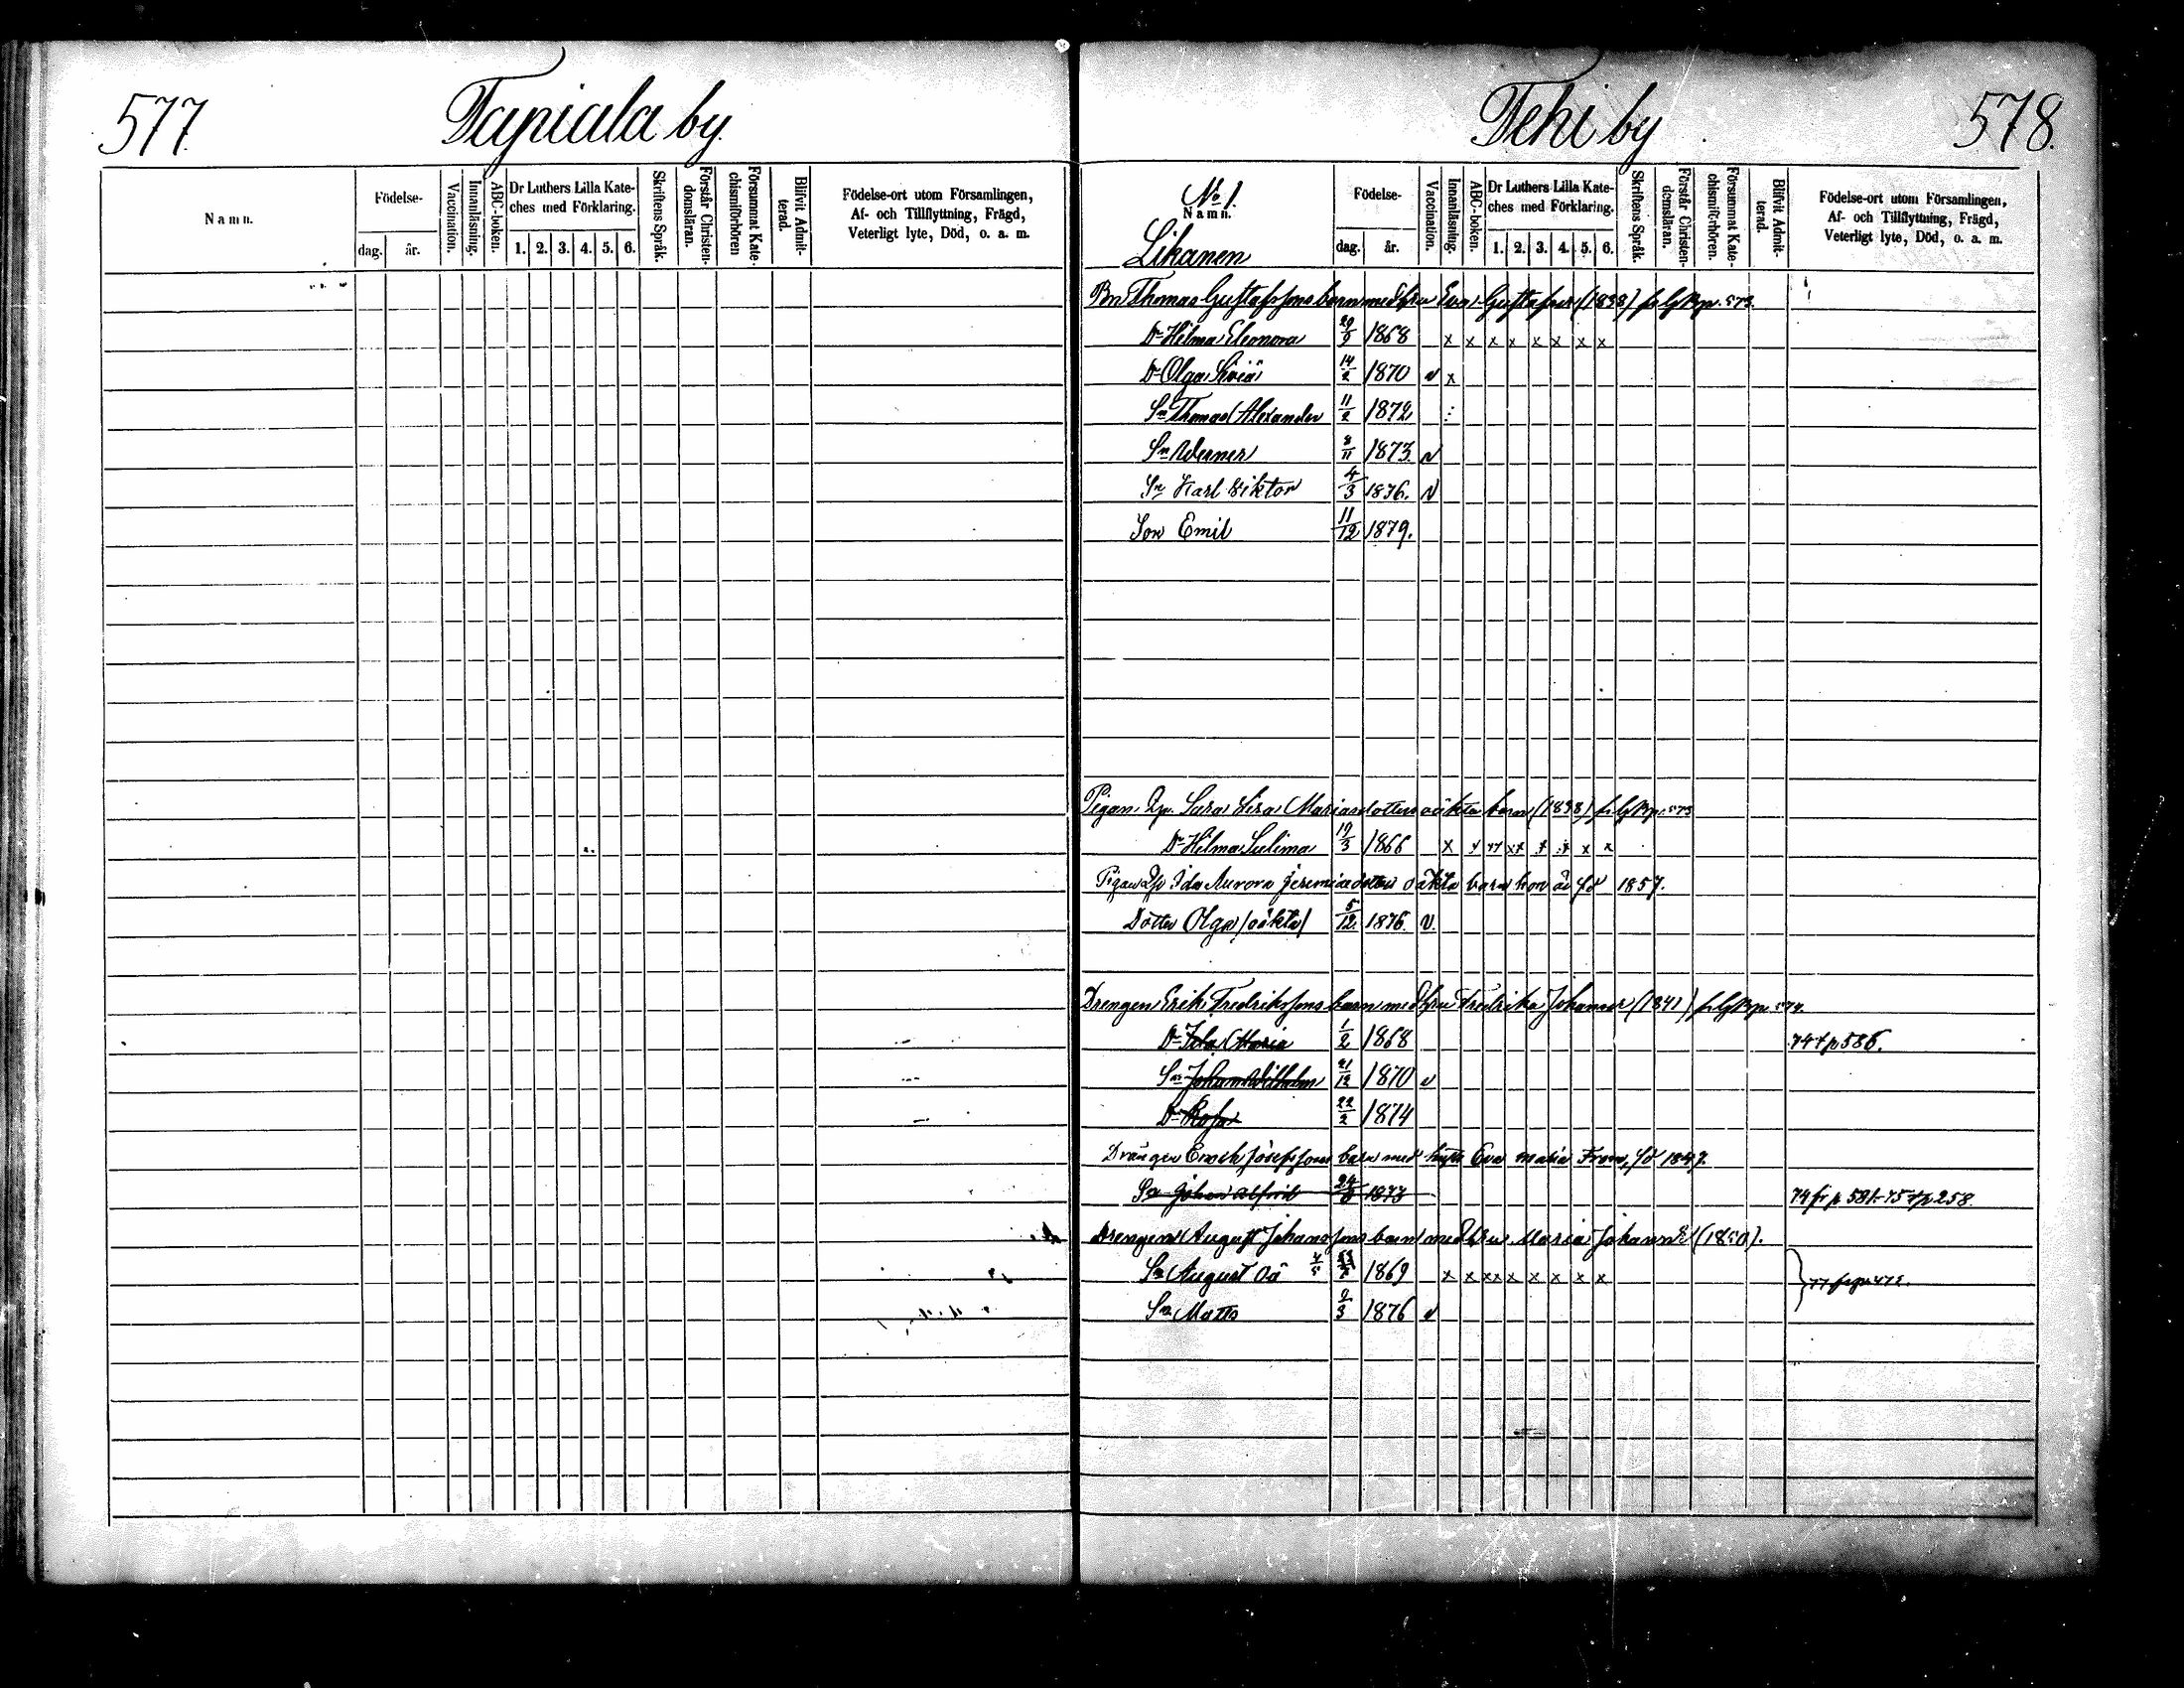 577.
Tapiala by.
Namn.
Födelse-
dag.
år.
Vaccination.
Innanläsning.
ABC-boken.
Dr Luthers Lilla Kate-
ches med Förklaring.
1. 2. 3. 4. 5. 6.
Skriftens Språk.
Förstår Christen-
domsläran.
Försummat Kate-
chismiförhören
Blifvit Admit-
terad.
Födelse-ort utom Församlingen,
Af- och Tillflyttning, Frägd,
Veterligt lyte, Död, o. a. m.
Tehi by
578.
No 1.
Namn.
Likanen
Födelse-
dag.
år.
Vaccination.
Innanläsning.
ABC-boken.
Dr Luthers Lilla Kate-
ches med Förklaring.
1. 2. 3. 4. 5. 6.
Skriftens Språk.
Förstår Christen-
domsläran.
Försummat Kate-
chismiförhören.
Blifvit Admit-
terad.
Födelse-ort utom Församlingen,
Af- och Tillflyttning, Frägd,
Veterligt lyte, Död, o. a. m.
Bn Thomas Gustafssons barn med hru Eva Gustafsdr (1838) 573.
Dr Hilma Eleonora 29/9 1868 x x x x x x x x
Dr Olga 14/2 1870 v x
Sn Thomas Alexander 11/2 1872
Sn Werner 8/11 1873 v
Sn Karl Viktor 4/3 1876. v
Son Emil 11/12 1879.
Pigan Sara Lisa Mariasdotters oäkta barn (1838) 573
Dr Hilma Sulima 19/3 1866 x x xx xx x x x x
Pigan Ida Aurora Jeremiaedotters oäkta barn hon är fd 1857.
Dotter Olga (oäkta) 5/12. 1876. v.
Drengen Erik Fredrikssons barn med hru Fredrika Johansdr (1841) 574.
Dr Ida Maria 1/2 1868 74 t p 586.
Sn Johan Wilhelm 21/12 1870 v
Dr Rosa 22/2 1874
Drängen Enoch Josefssons barn med Eva Maria From, fd 1847.
Sn Johan Alfrid 1873 74 fr p 581-75 t p 258.
Drengen August Johanssons barn med hru Maria Johansdr (1850).
Sn August Oä 1869 x x xx x x x x x
Sn Matts 9/3 1876 v